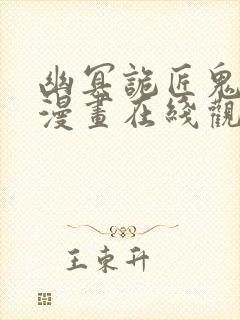 幽冥詭匠鬼
漫畫在綫觀
王東升